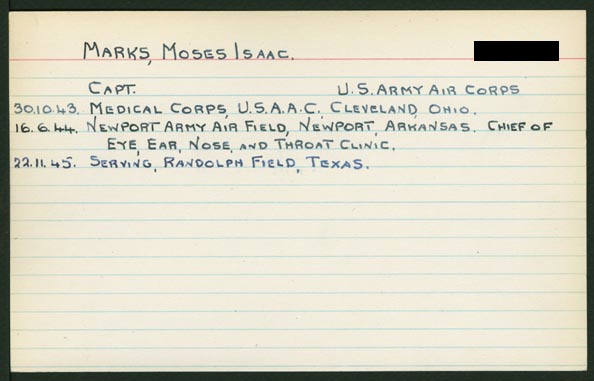 MARKS, MOSES ISAAC.
CAPT. U.S. ARMY AIR CORPS
30.10.43. MEDICAL CORPS, U.S.A.A.C., CLEVELAND, OHIO.
16.6.44. NEWPORT ARMY AIR FIELD, NEWPORT, ARKANSAS. CHIEF OF
EYE, EAR, NOSE, AND THROAT CLINIC.
22.11.45. SERVING, RANDOLPH FIELD, TEXAS.